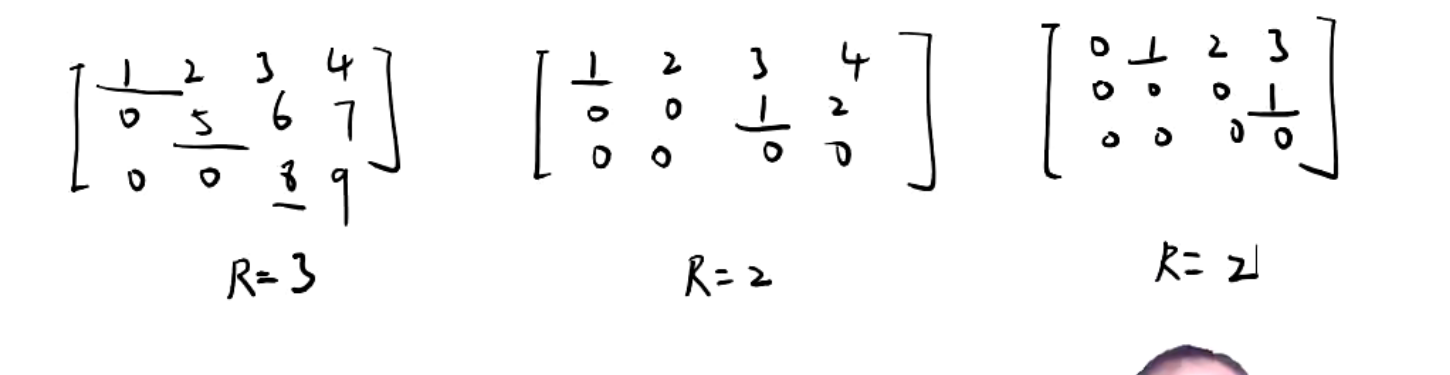 1 2 3 4
0 5 6 7
0 0 8 9
R=3
1 2 3 4
0 0 1 2
0 0 0 0
R=2
0 1 2 3
0 0 0 1
0 0 0 0
R=2